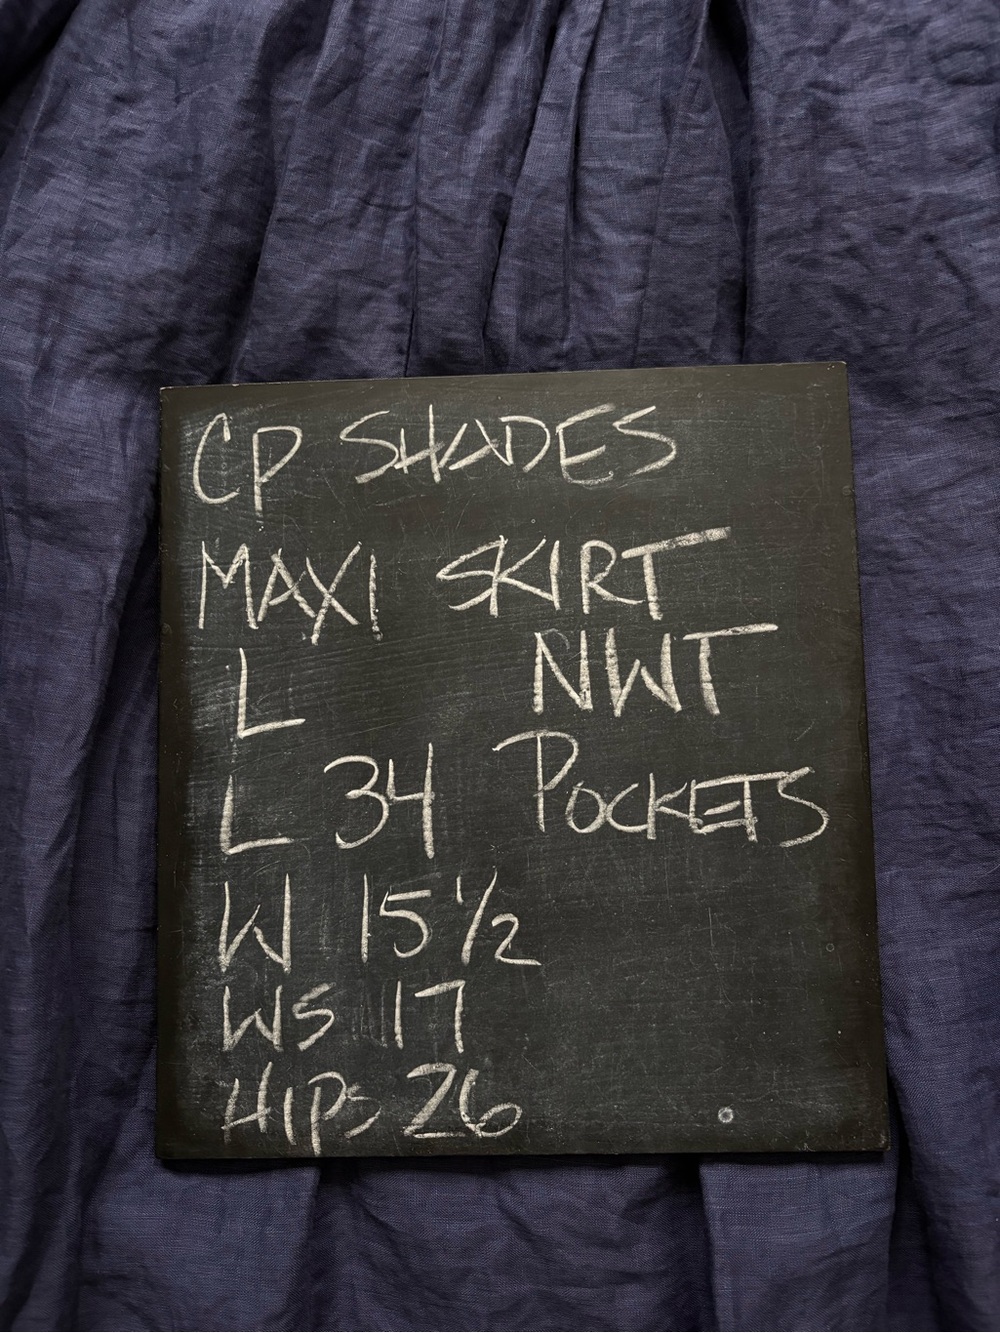 CP SHADES
MAXI SKIRT
L NWT
L 34 POCKETS
W 15 1/2
WS 17
HIPS 26